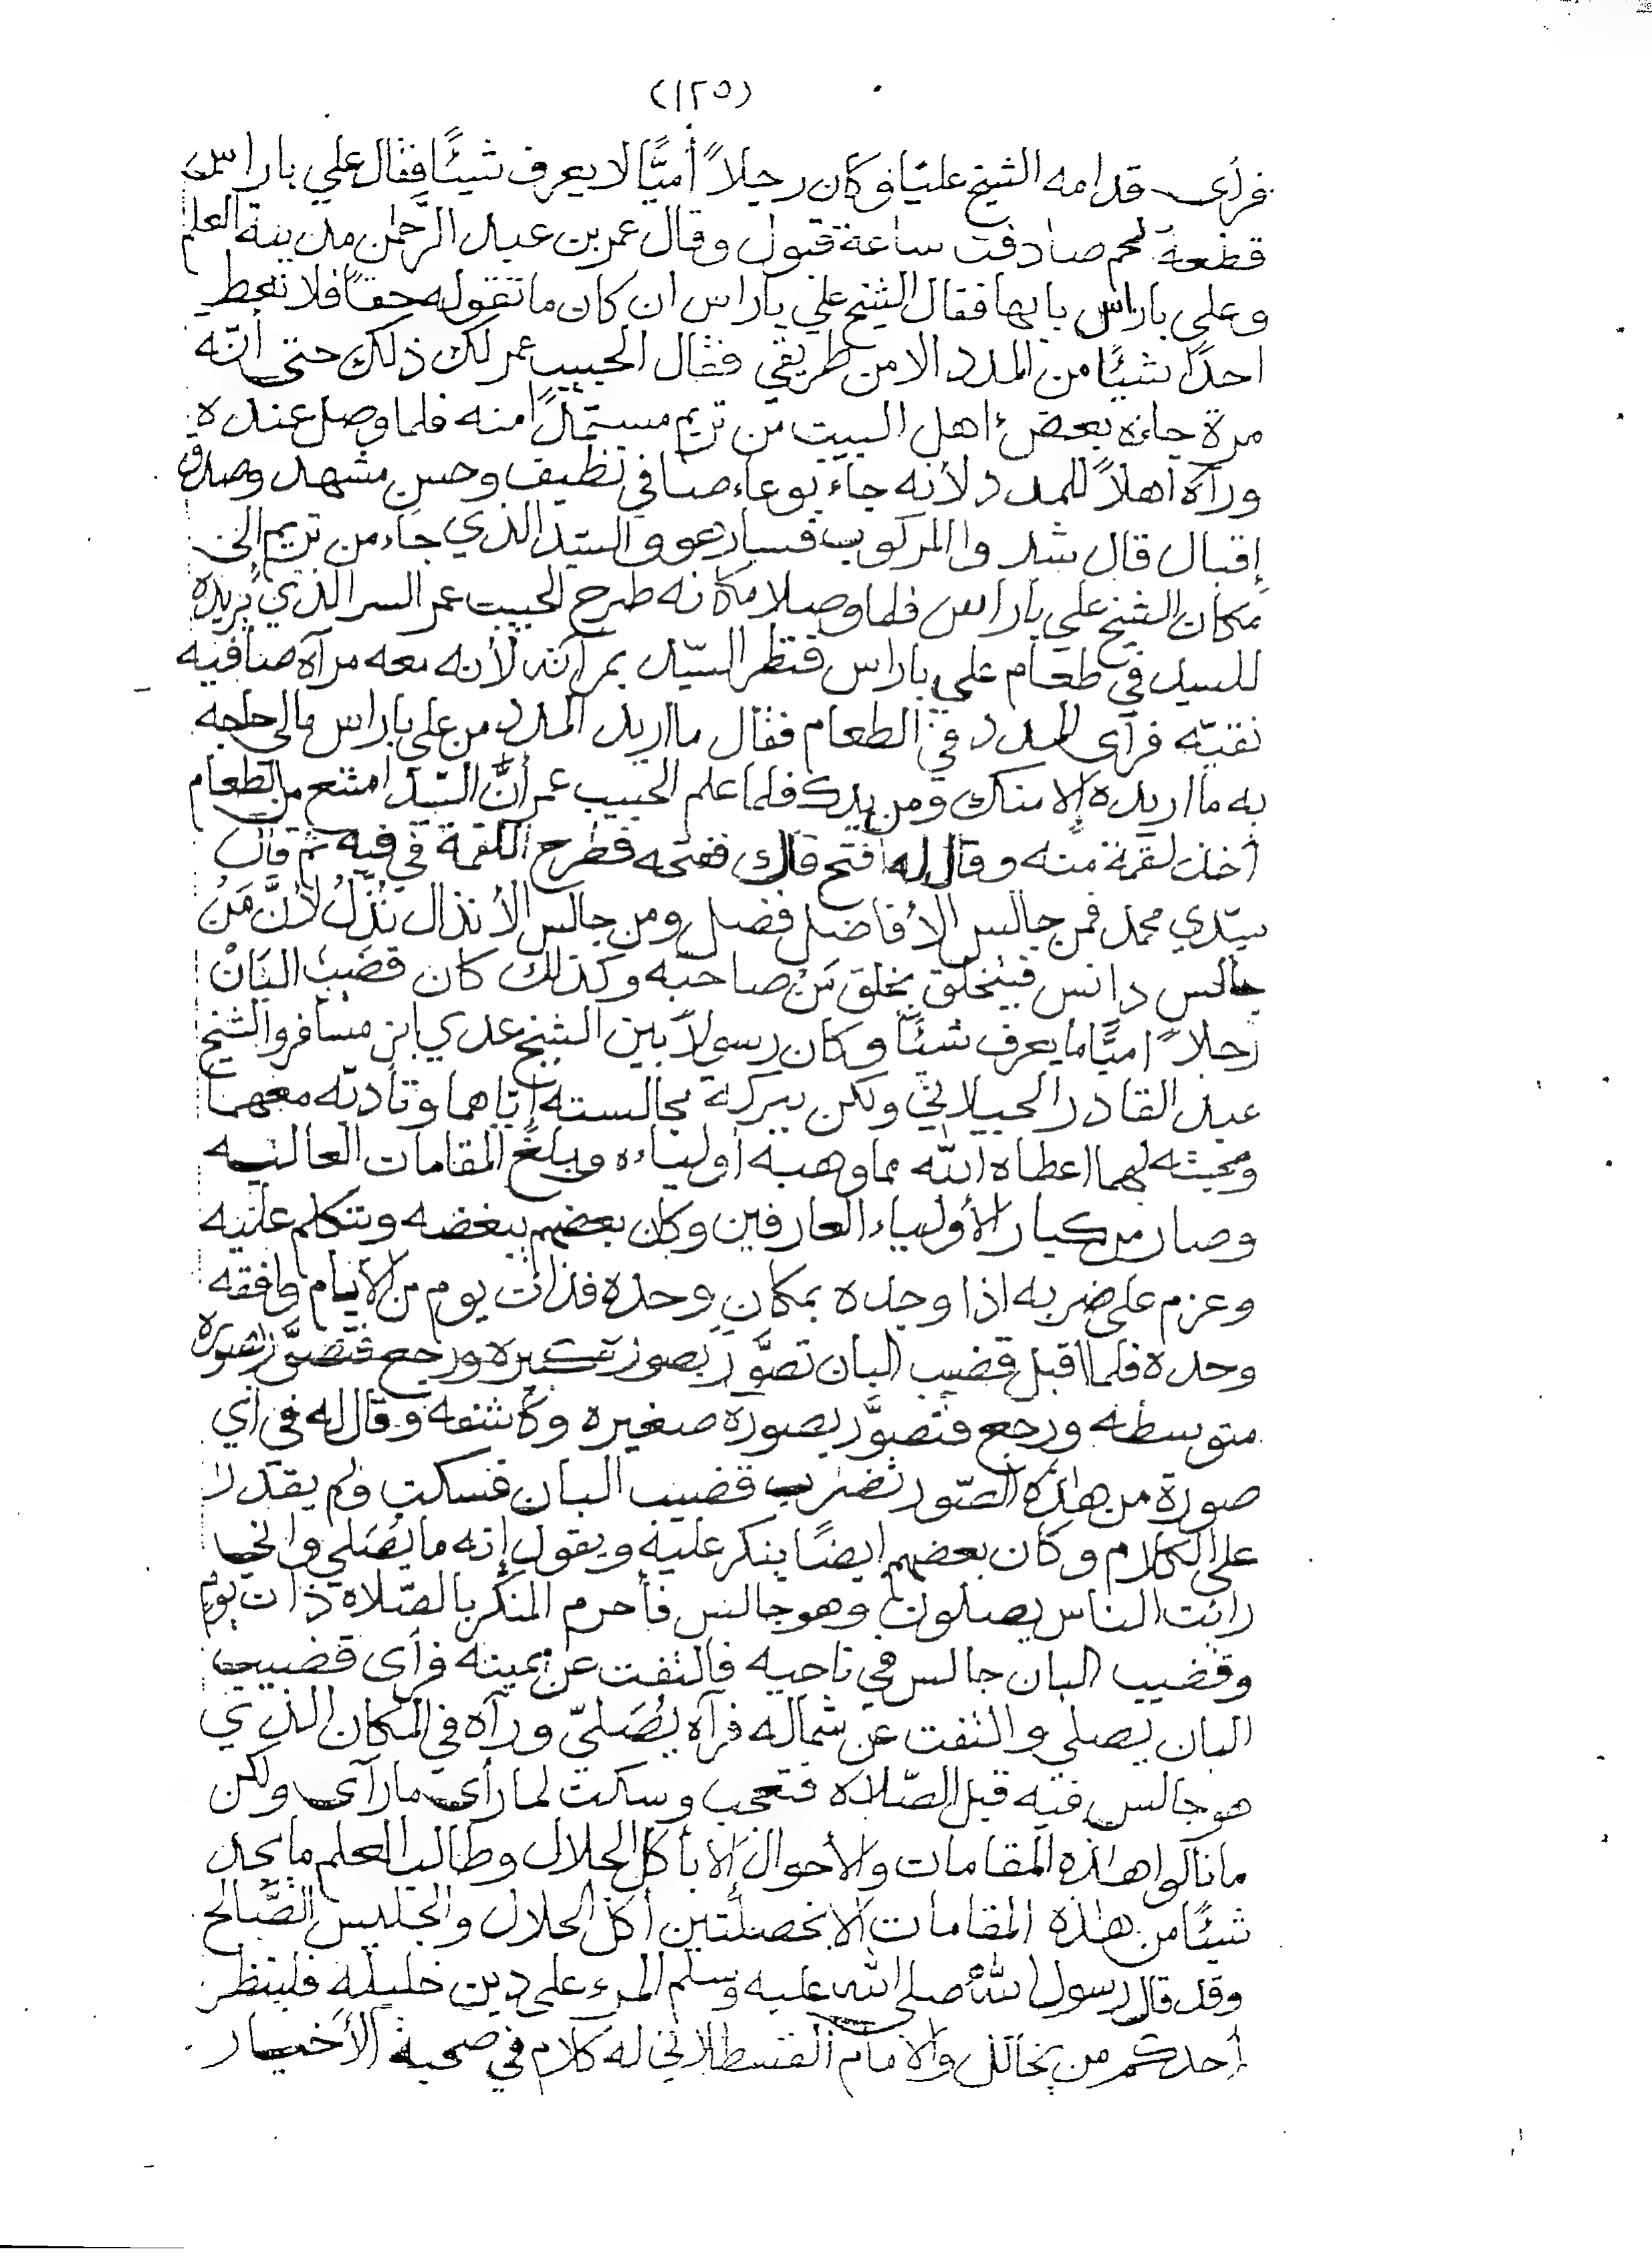 (١٢٥)
فرأى قدامه الشيخ عليًا وكان رجلاً أميًّا لا يعرف شيئًا فقال علي باراس
قطعة لحم صادفت ساعة قبول وقال عمر بن عبد الرحمن مدينة العلم
وعلي باراس بابها فقال الشيخ علي باراس ان كان ما تقوله حقاً فلا تعط
احدًا شيئًا من المدد الا من طريقي فقال الحبيب عمر لك ذلك حتى أنّه
مرة جاءه بعض اهل البيت من تريم مستمدًا منه فلما وصل عنده
ورآه اهلاً للمدد لأنه جاء بوعاء صافي نظيف وحسن مشهد وصدق
إقبال قال شدوا المركوب فسار هو والسيّد الذي جاء من تريم الى
مكان الشيخ علي باراس فلما وصلا مكانه طرح الحبيب عمر السر الذي يريده
للسيد في طعام علي باراس فنظر السيّد بمرآته لأنه معه مرآه صافيه
نقيّه فرآى المدد في الطعام فقال ما اريد المدد من علي باراس مالي حاجه
به ما اريده إلا منك ومن يدك فلما علم الحبيب عمر أنَّ السيّد امتنع من الطعام
أخذ لقمة منه وقال له افتح فاك ففتحه فطرح اللقمة في فيه ثم قال
سيّدي محمد فمن جالس الأفاضل فضل ومن جالس الأنذال نُذّلُ لأنَّ مَنْ
جالس دانس فيتخلق بخلق مَنْ صاحبه وكذلك كان قضيبُ البَانْ
رجلاً اميًّا ما يعرف شيئًا وكان رسولاً بين الشيخ عدي ابن مسافر والشيخ
عبد القادر الجيلاني ولكن ببركة مجالسته إيّاهما وتأدبّه معهما
ومحبته لهما اعطاه الله مما وهبه أولياءه وبلغ المقامات العاليه
وصار من كبار الأولياء العارفين وكان بعضهم يبغضه ويتكلم عليه
وعزم على ضربه اذا وجده بمكانٍ وحده فذات يوم من الايام وافقه
وحده فلما اقبل قضيب البان تصوَّر بصوره كبيره ورجع فتصوَّر بصوره
متوسطه ورجع فتصوَّر بصورة صغيره وكاشفه وقال له في أي
صورة من هذه الصّور تضرب قضيب البان فسكت ولم يقدر
على الكلام وكان بعضهم ايضًا ينكر عليه ويقول إنّه ما يُصَلي واني
رائت الناس يصلون وهو جالس فأحرم المنكر بالصّلاه ذات يوم
وقضيب البان جالس في ناحيه فالتفت عن يمينه فرأى قضيب
البان يصلي والتفت عن شماله فرآه يُصَليّ ورآه في المكان الذي
هو جالس فيه قبل الصّلاه فتعجب وسكت لما رأى ما رآى ولكن
ما نالوا هذه المقامات والأحوال إلا بأكل الحلال وطالب العلم ما يجد
شيئًا من هذه المقامات الا بخصلتين أكل الحلال والجليس الصّالح
وقد قال رسول الله صلى الله عليه وسلم المرء على دين خليله فلينظر
أحدكم من يخالل والامام القسطلاني له كلام في صحبة الأخيار